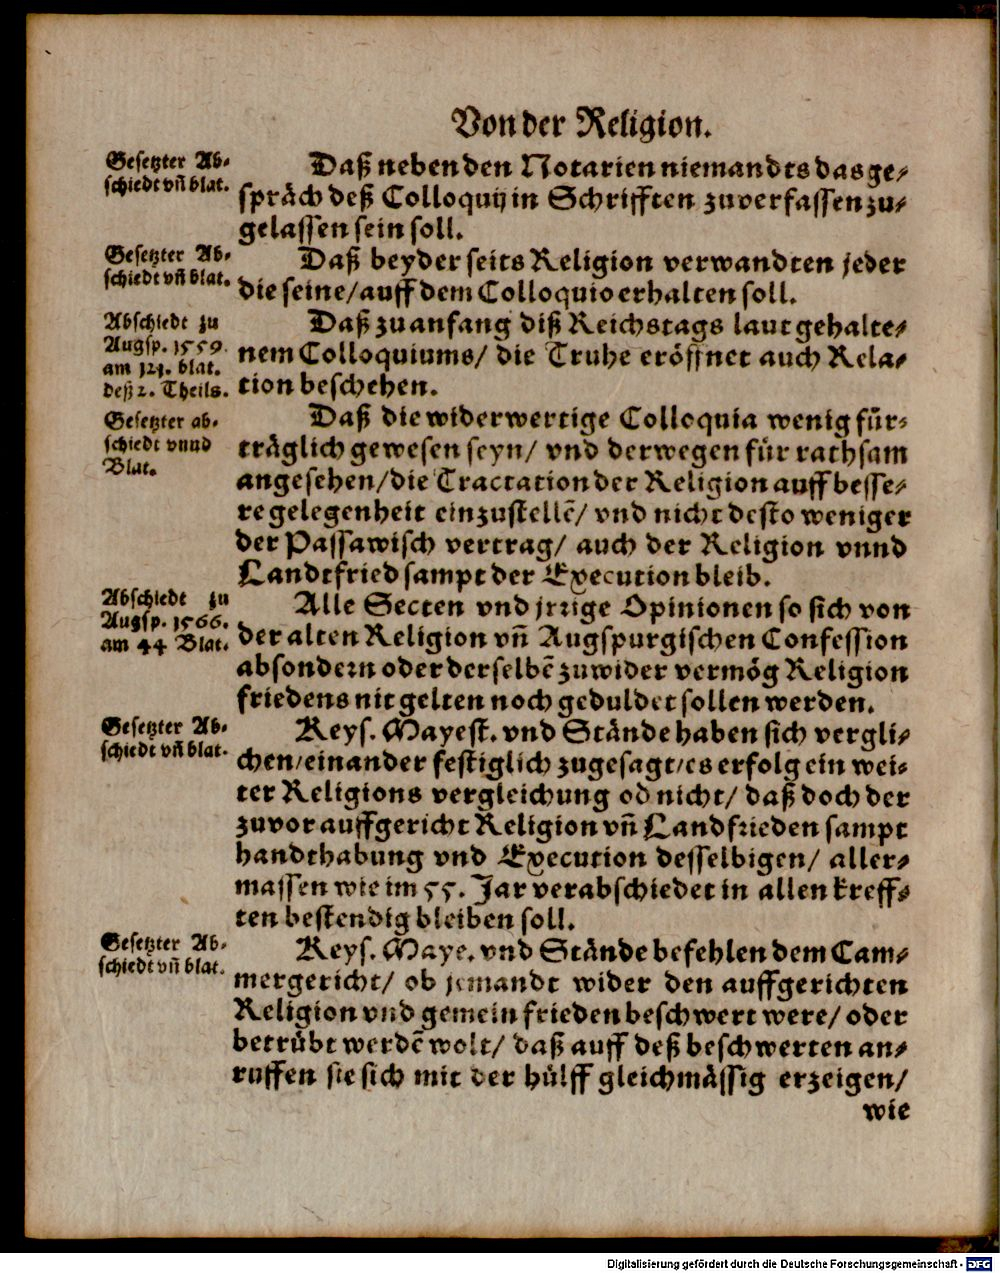 Von der Religion.
Gesetzter Ab-
schiedt vn̄ blat.
Daß neben den Notarien niemandts das ge-
spräch deß Colloquij in Schrifften zuverfassen zu-
gelassen sein soll.
Gesetzter Ab-
schiedt vn̄ blat.
Daß beyder seits Religion verwandten jeder
die seine/ auff dem Colloquio erhalten soll.
Abschiedt zu
Augsp. 1559.
am 121. blat.
deß 2. Theils.
Daß zu anfang diß Reichstags laut gehalte-
nem Colloquiums/ die Truhe eröffnet auch Rela-
tion beschehen.
Gesetzter ab-
schiedt vnnd
Blat.
Daß die widerwertige Colloquia wenig für-
träglich gewesen seyn/ vnd derwegen für rathsam
angesehen/ die Tractation der Religion auff besse-
re gelegenheit einzustellē/ vnd nicht desto weniger
der Passawisch vertrag/ auch der Religion vnnd
Landtfried sampt der Execution bleib.
Abschiedt zu
Augsp. 1566.
am 44 Blat.
Alle Secten vnd jrrige Opinionen so sich von
der alten Religion vn̄ Augspurgischen Confession
absondern oder derselbē zuwider vermög Religion
friedens nit gelten noch geduldet sollen werden.
Gesetzter Ab-
schiedt vn̄ blat.
Keys. Mayest. vnd Stände haben sich vergli-
chen/ einander festiglich zugesagt/ es erfolg ein wei-
ter Religions vergleichung od nicht/ daß doch der
zuvor auffgericht Religion vn̄ Landfrieden sampt
handthabung vnd Execution desselbigen/ aller-
massen wie im 55. Jar verabschiedet in allen kreff-
ten bestendig bleiben soll.
Gesetzter Ab-
schiedt vn̄ blat.
Keys. Maye. vnd Stände befehlen dem Cam-
mergericht/ ob jemandt wider den auffgerichten
Religion vnd gemein frieden beschwert were/ oder
betrübt werdē wolt/ daß auff deß beschwerten an-
ruffen sie sich mit der hülff gleichmässig erzeigen/
wie
Digitalisierung gefördert durch die Deutsche Forschungsgemeinschaft - DFG